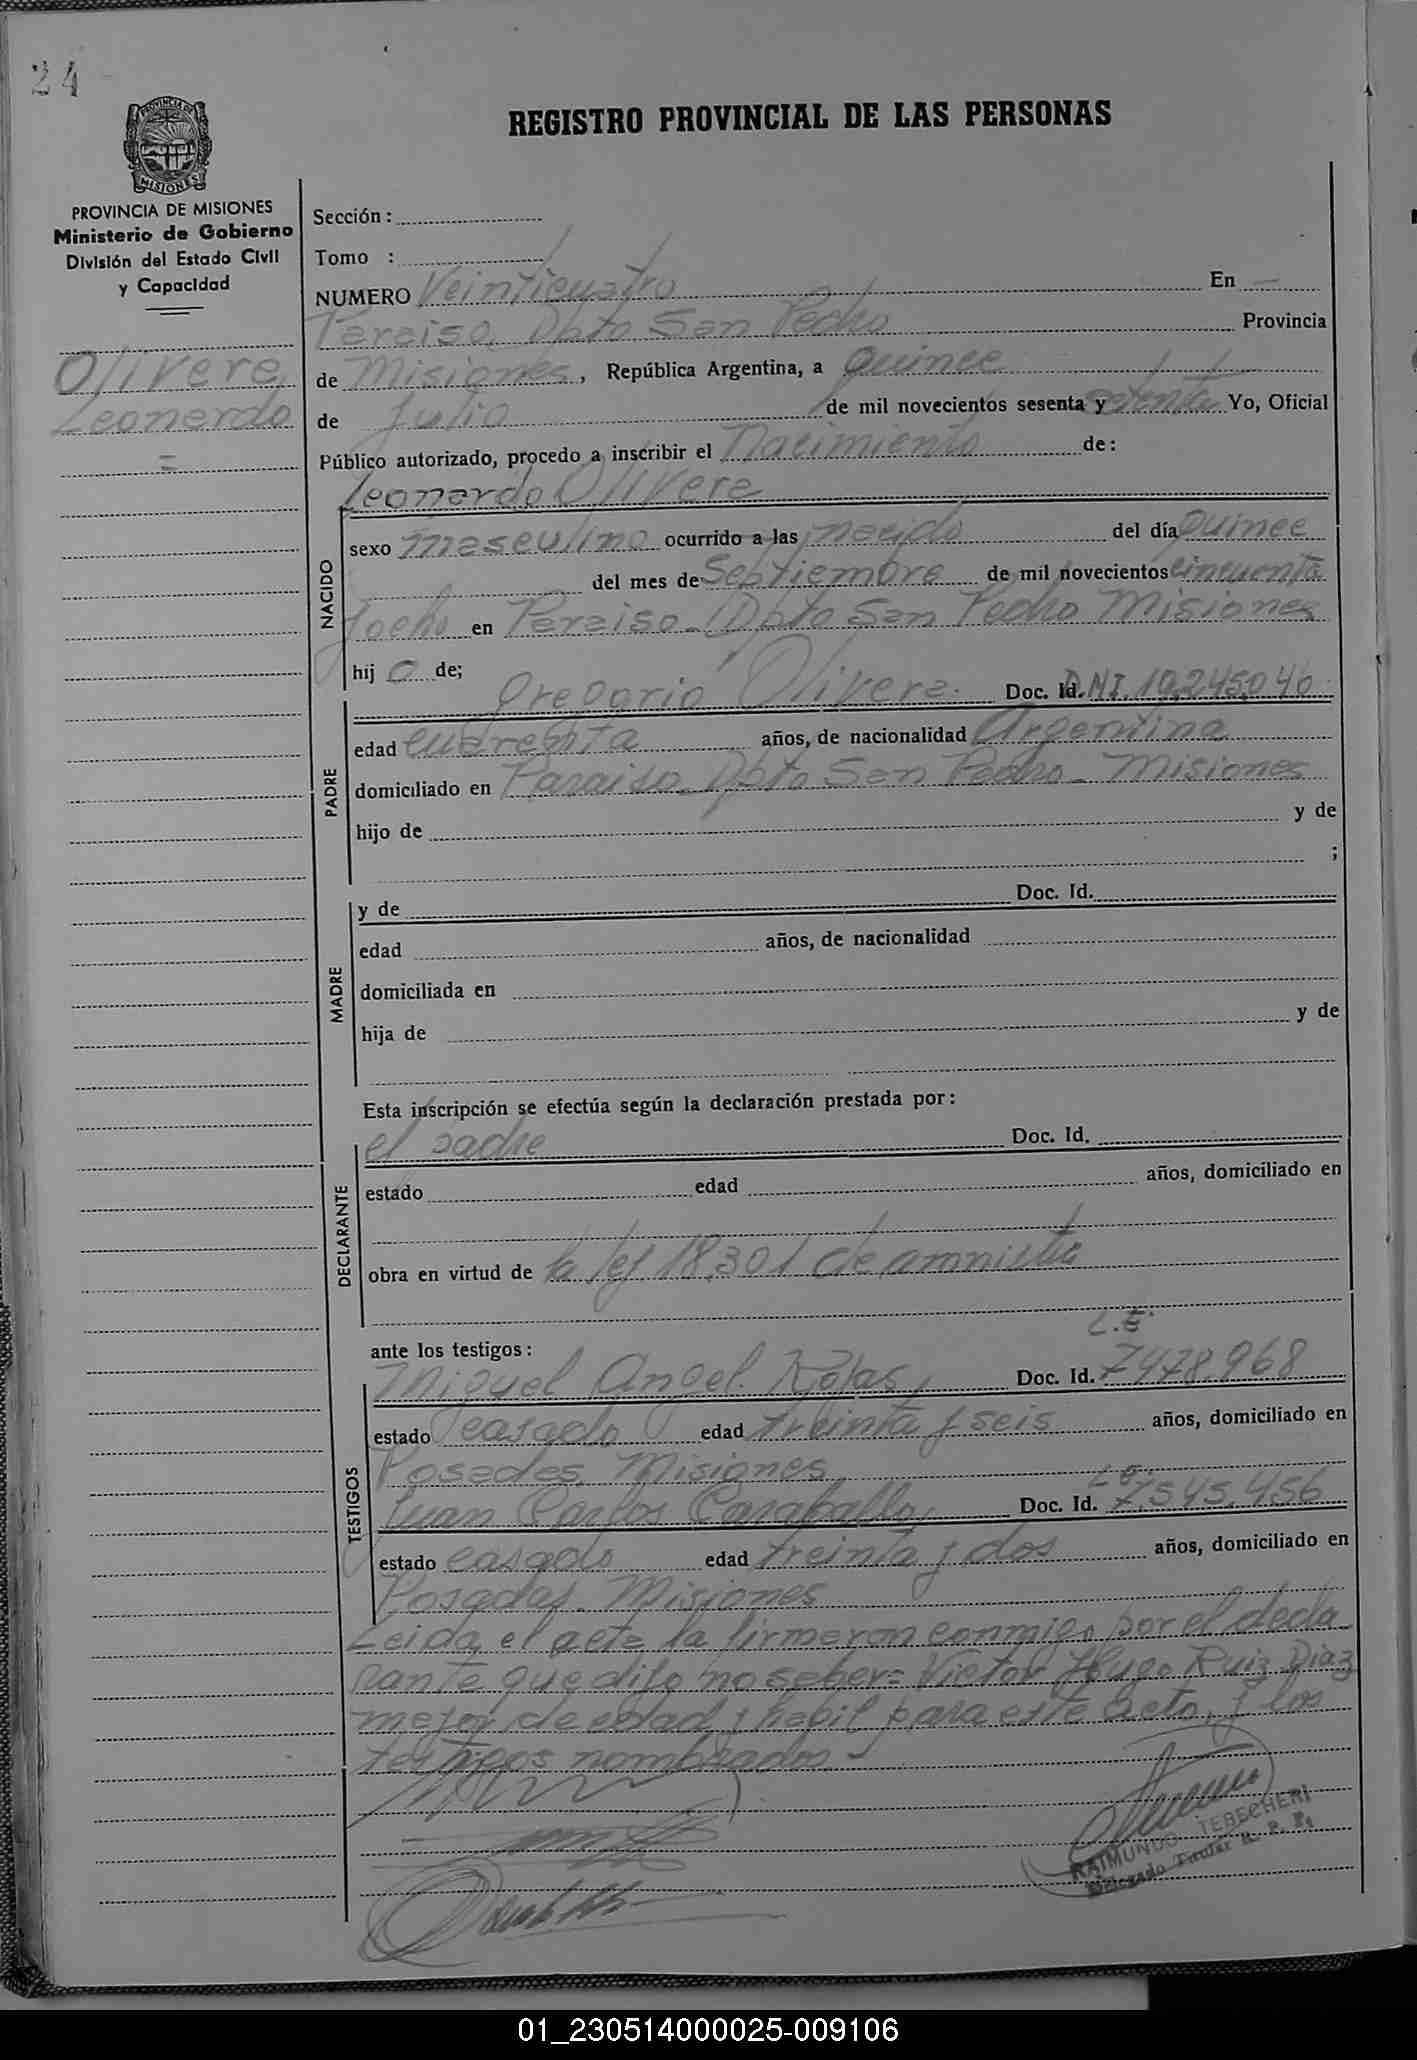 24
REGISTRO PROVINCIAL DE LAS PERSONAS
PROVINCIA DE MISIONES
MISIONES
PROVINCIA DE MISIONES
Ministerio de Gobierno
División del Estado Civil
y Capacidad
Olivera
Leonardo
=
Sección :
Tomo :
NUMERO Veinticuatro En —
Paraiso, Dpto San Pedro Provincia
de Misiones, República Argentina, a quince
de Julio de mil novecientos sesenta y setenta Yo, Oficial
Público autorizado, procedo a inscribir el Nacimiento de:
Leonardo Olivera
NACIDO
sexo masculino ocurrido a las nacido del día quince
del mes de Septiembre de mil novecientos cincuenta
y ocho en Paraiso - Dpto San Pedro Misiones
hij o de;
Gregorio Olivera. Doc. Id. D.N.I. 10.245.046
PADRE
edad cuarenta años, de nacionalidad Argentina
domiciliado en Paraiso - Dpto San Pedro - Misiones
hijo de y de
;
y de Doc. Id.
MADRE
edad años, de nacionalidad
domiciliada en
hija de y de
Esta inscripción se efectúa según la declaración prestada por:
el padre Doc. Id.
DECLARANTE
estado edad años, domiciliado en
obra en virtud de la ley 18.301 de amnistia
ante los testigos: L.E.
Miguel Angel Rojas, Doc. Id. 7478.968
TESTIGOS
estado casado edad treinta y seis años, domiciliado en
Posadas, Misiones L E.
Juan Carlos Caraballo, Doc. Id. 7.545.456
estado casado edad treinta y dos años, domiciliado en
Posadas. Misiones
Leida el acta la firmaron conmigo por el decla
rante que dijo no saber= Victor Hugo Ruiz Diaz
mayor de edad y habil para este acto, y los
testigos nombrados -
RAIMUNDO TEBECHERI
Delegado Titular R. P. P.
01_230514000025-009106